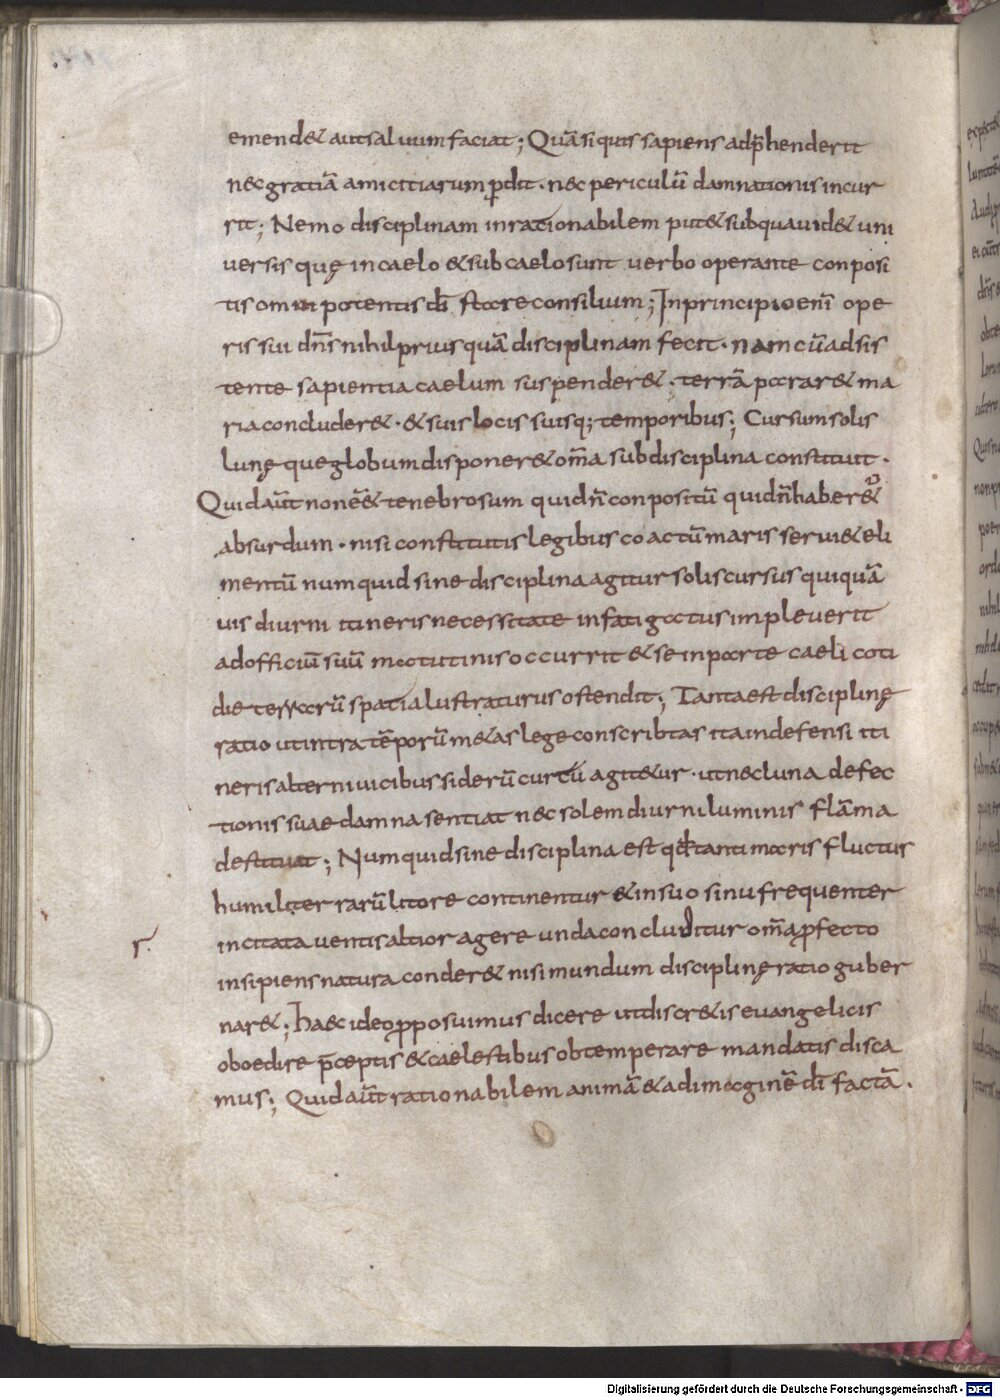 emend& aut saluum faciat; Quā si quis sapiens adp̄henderit
nec gratiā amicitiarum ꝑdit · nec periculū damnationis incur
rit; Nemo disciplinam inrationabilem put& sub qua uid& uni
versis quę in caelo & sub caelo sunt verbo operante conposi
tis omnipotentis dī stare consilium; In principio enī ope
ris sui dn̄s nihil prius quā disciplinam fecit · nam cū adsis
tente sapientia caelum suspender& · terrā parar& ma
ria concluder& · & suis locis suisq; temporibus; Cursum solis
lunę que globum disponer& om̄a sub disciplina constituit ·
Quid aūt non eē& tenebrosum quid n̄ conpositū quid n̄ haber&
absurdum · nisi constitutis legibus coactū maris serui& eli
mentū numquid sine disciplina agitur solis cursus qui quā
uis diurni itineris necessitate infatigatus impleverit
ad officiū suū matutinis occurrit & se in parte caeli coti
die terrarū spatia lustraturus ostendit; Tanta est disciplinę
ratio ut intra tēporū m&as lege conscribtas ita indefensi iti
neris alterni uicibus siderū cursū agit&ur · ut nec luna defec
tionis suae damna sentiat nec solem diurni luminis flāma
destituat; Numquid sine disciplina est qd̄ tanti maris fluctus
humiliter rarū litore continentur & in suo sinu frequenter
incitata uentis altior agere unda concluditur om̄a ꝓfecto
insipiens natura conder& nisi mundum disciplinę ratio guber
nar&; haec ideo ꝓpposuimus dicere ut discr&is evangelicis
oboedire p̄ceptis & caelestibus obtemperare mandatis disca
mus; Quid aūt rationabilem animā & ad imaginē dī factā ·
r.